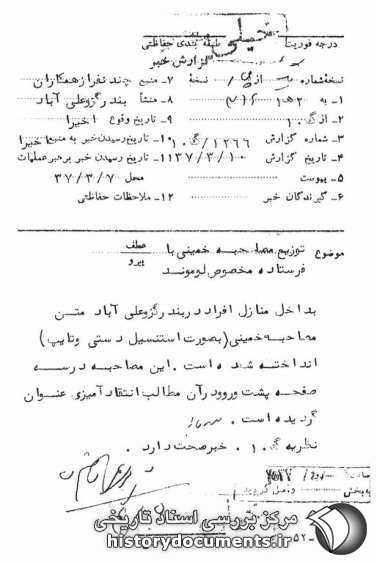 درجه فوریت طبقه بندی حفاظتی
خیلی
گزارش خبر
نسخه شماره از نسخه ۷- منبع چند نفر از همکاران
۱- به ۳۱۲ ۸- منشأ بندر گز وعلی آباد
۲- از گ ۱۰ ۹- تاریخ وقوع اخیرا
۳- شماره گزارش ۱۲۶۶/گ ۱۰ ۱۰- تاریخ رسیدن خبر به منبع اخیرا
۴- تاریخ گزارش ۳۷/۳/۱۰ ۱۱- تاریخ رسیدن خبر برهبر عملیات
۵- پیوست محل ۳۷/۳/۷
۶- گیرندگان خبر ۱۲- ملاحظات حفاظتی
موضوع توزیع مصاحبه خمینی با عطف
فرستاده مخصوص لوموند پیرو
بداخل منازل افراد در بندر گز وعلی آباد متن
مصاحبه خمینی (بصورت استنسیل دستی وتایپ)
انداخته شده است. این مصاحبه در سه
صفحه پشت ورو و در آن مطالب انتقاد آمیزی عنوان
گردیده است.
نظریه گ ۱۰. خبر صحت دارد.
ساعت
به بخش واصل گردید
مرکز بررسی اسناد تاریخی
historydocuments.ir